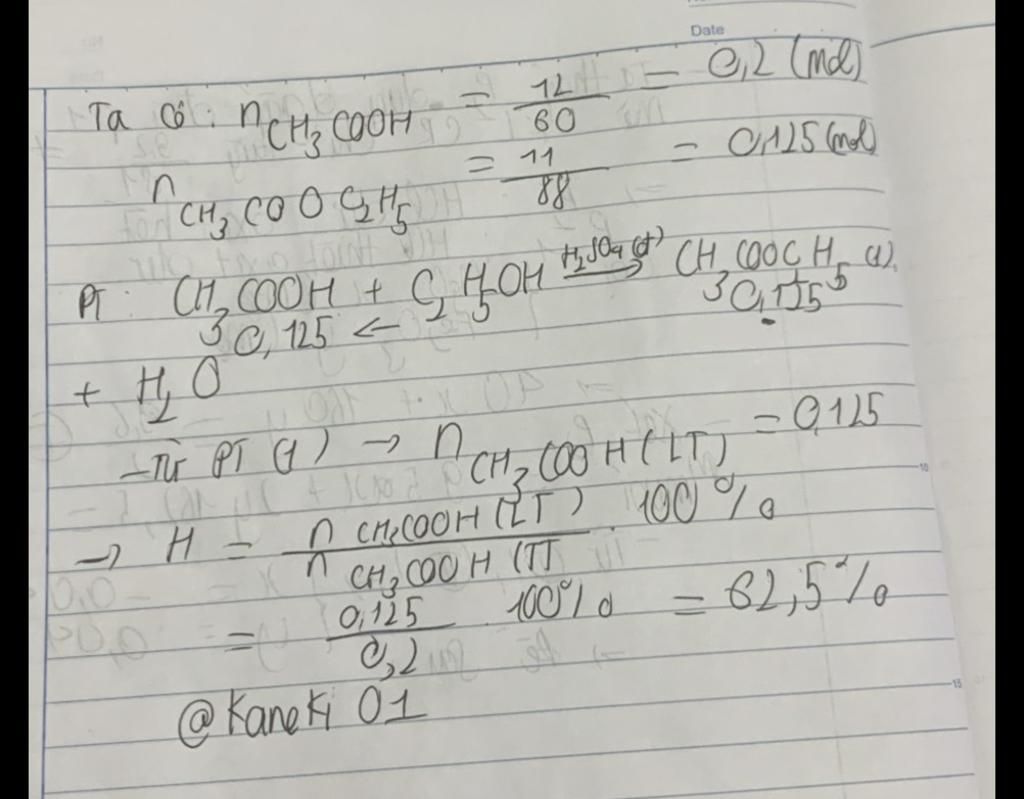 Date
Ta có: nCH3COOH = 12/60 = 0,2 (mol)
nCH3COOC2H5 = 11/88 = 0,125 (mol)
PT: CH3COOH + C2H5OH H2SO4(đ) → CH3COOCH5 (1)
0,125 ← 0,125
+ H2O
- Từ PT (1) → nCH3COOH (LT) = 0,125
→ H = nCH3COOH (LT) / nCH3COOH (TT . 100%
= 0,125/0,2 . 100% = 62,5%
@Kaneki 01
10
15